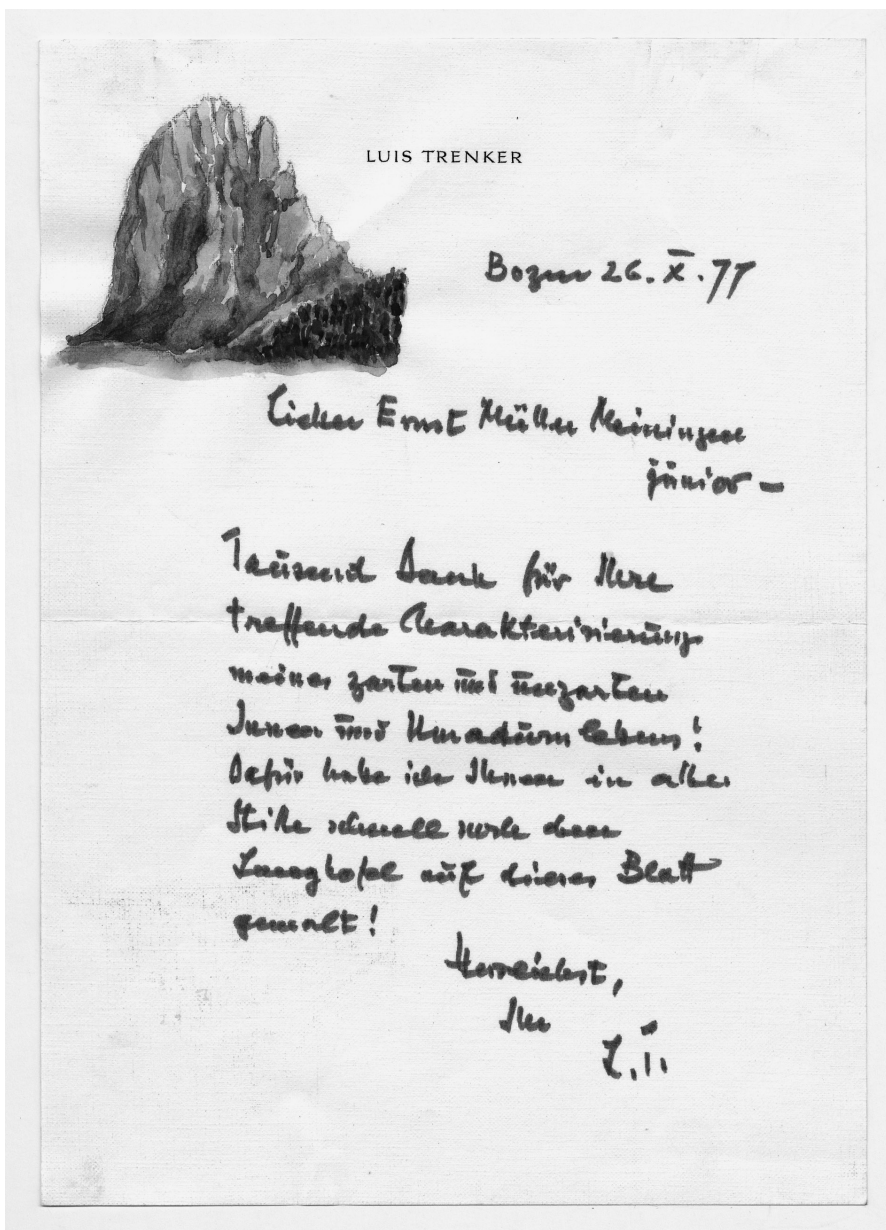 LUIS TRENKER
Bozen 26. X. 77
Lieber Ernst Müller Meiningen
junior –
Tausend Dank für Ihre
treffende Charakterisierung
meines zarten und unzarten
Innen und
Dafür habe ich Ihnen in aller
Stille schnell noch den
Langkofel auf dieses Blatt
gemalt!
Herzlichst,
Ihr
L.T.